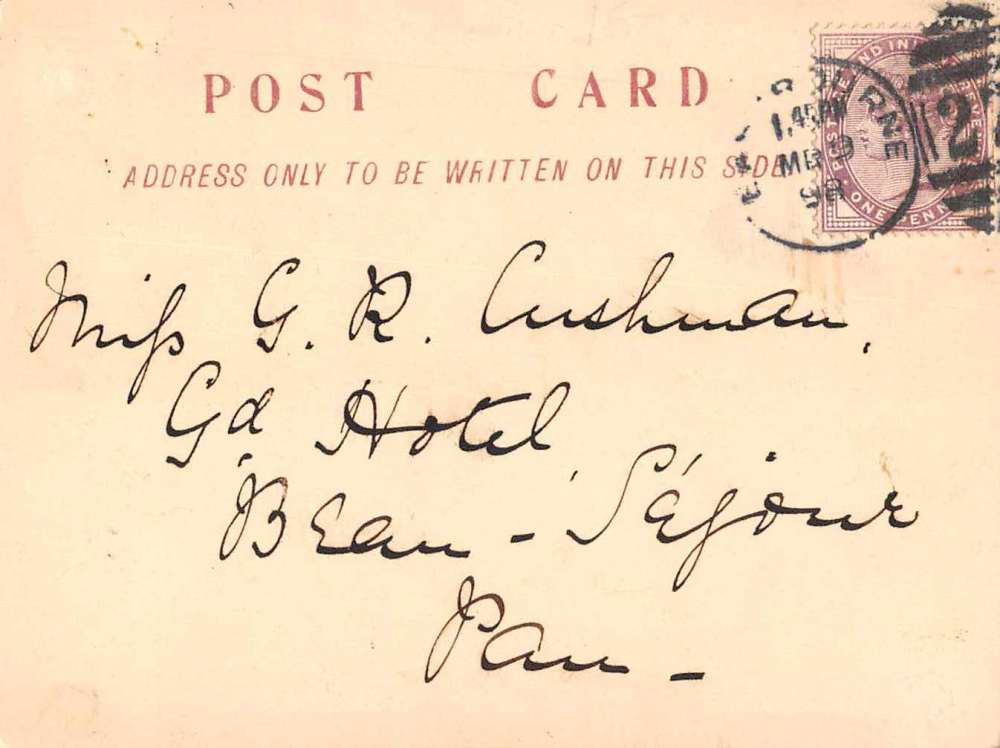 POST CARD
ADDRESS ONLY TO BE WRITTEN ON THIS SIDE
1.45PM
MR 9
98
POSTAGE AND INLAND REVENUE
ONE PENNY
Miss G. R. Cushman,
Gd Hotel,
Beau-Séjour
Pau-